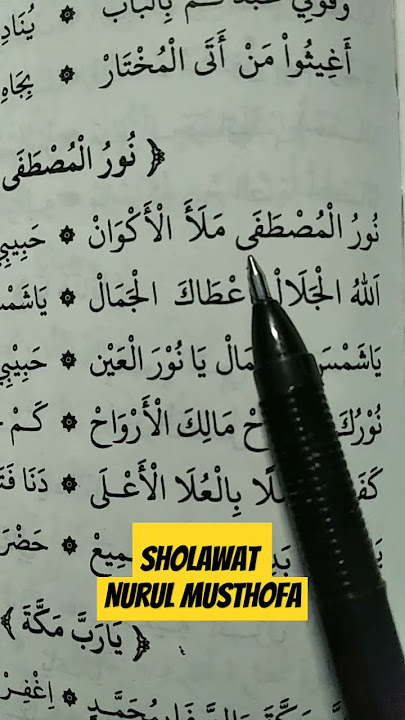 وَقُولِي عَبْدُكُمْ بِالْبَابْ ۞ يُنَادِ
أَغِيثُواْ مَنْ أَتَى الْمُخْتَارْ ۞ بِجَاهِ
﴿ نُورُ الْمُصْطَفَى
نُورُ الْمُصْطَفَى مَلَأَ الْأَكْوَانْ ۞ حَبِيبِي
اَللهُ الْجَلَالْ عْطَاكَ الْجَمَالْ ۞ يَاشَمْسَ
يَاشَمْسَ مَالْ يَا نُوْرَ الْعَيْن ۞ حَبِيْبِي
نُوْرُكَ حْ مَالِكَ الْأَرْوَاحْ ۞ كَمْ
كَفَ لًا بِالْعُلَا الْأَعْلَى ۞ دَنَا فَتَ
مِيعْ ۞ حَضْرَ
SHOLAWAT
NURUL MUSTHOFA
﴿ يَارَبَّ مَكَّةَ ﴾
مُحَمَّدٍ ۞ اِغْفِرْ